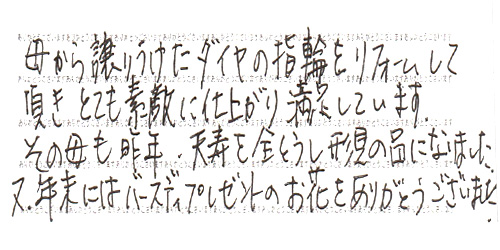 母から譲りうけたダイヤの指輪をリフォームして
頂き とても素敵に仕上がり満足しています.
その母も昨年、天寿を全とうし形見の品になりました
又.年末にはバースディプレゼントのお花をありがとうございました.